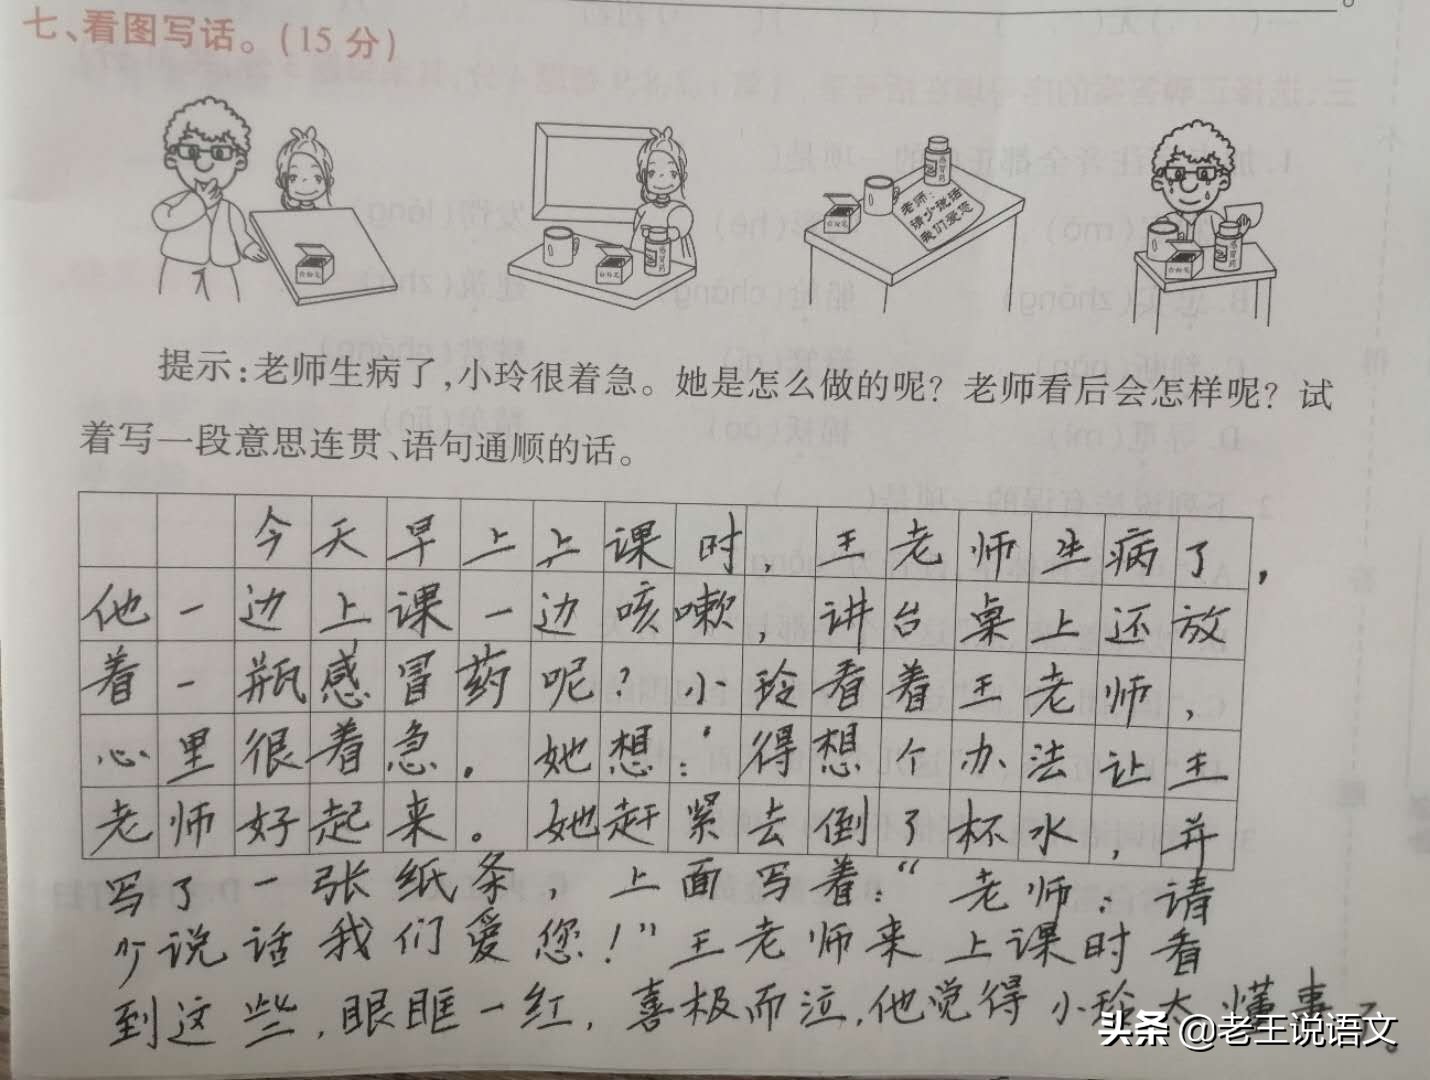 七、看图写话。(15分)
老师：
请少说话
我们爱您
感冒药
提示：老师生病了，小玲很着急。她是怎么做的呢？老师看后会怎样呢？试
着写一段意思连贯、语句通顺的话。
今天早上上课时，王老师生病了，
他一边上课一边咳嗽，讲台桌上还放
着一瓶感冒药呢？小玲看着王老师，
心里很着急。她想：得想个办法让王
老师好起来。她赶紧去倒了杯水，并
写了一张纸条，上面写着：“老师：请
少说话我们爱您！”王老师来上课时看
到这些，眼眶一红，喜极而泣，他觉得小玲太懂事了。
头条 @老王说语文